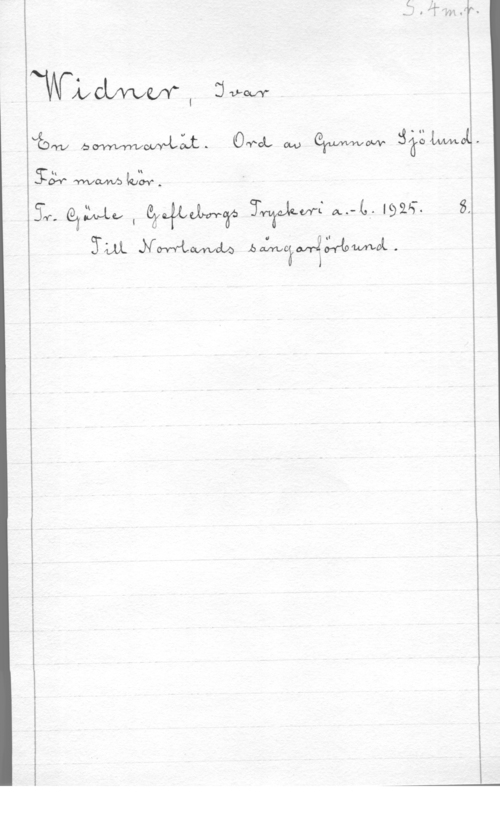 S. 4 m.r.
Widner, Ivar
En sommarlåt. Ord av Gunnar Sjölund.
För manskör.
Tr. Gävle, Gefleborgs Tryckeri a.-b. 1925. 8.
Till Norrlands sångarförbund.